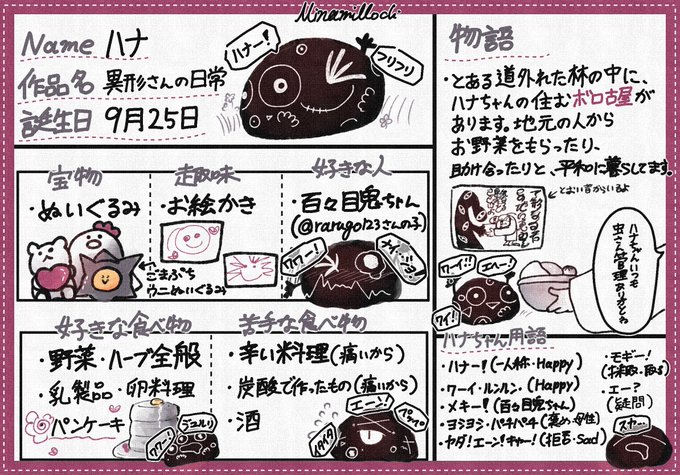 Minamillochi
Name ハナ
作品名 異形さんの日常
誕生日 9月25日
ハナー!
フリフリ
宝物
・ぬいぐるみ
ごまぷち
ウニぬいぐるみ
趣味
・お絵かき
好きな人
・百々目鬼ちゃん
(@rarugo123さんの子)
ワワー!
好きな食べ物
・野菜・ハーブ全般
・乳製品・卵料理
パンケーキ
ワワー!
ジュルリ
苦手な食べ物
・辛い料理(痛いから)
・炭酸で作ったもの(痛いから)
・酒
エーン!
物語
・とある道外れた林の中に、
ハナちゃんの住むボロ古屋が
あります。地元の人から
お野菜をもらったり、
助け合ったりと、平和に暮らしてます。
とおい昔からいるよ
ワーイ!!
エヘー!
ワイ!
ハナちゃんいつも
ハナちゃん用語
・ハナー!(一人称・Happy)
・ワーイ・ルンルン(Happy)
・メキー!(百々目鬼ちゃん)
・ヨシヨシ・パキパキ(褒め・母性)
・ヤダ!エーン!キャー!(拒否・Sad)
・モギー!
・エー?
(疑問)
スヤ…